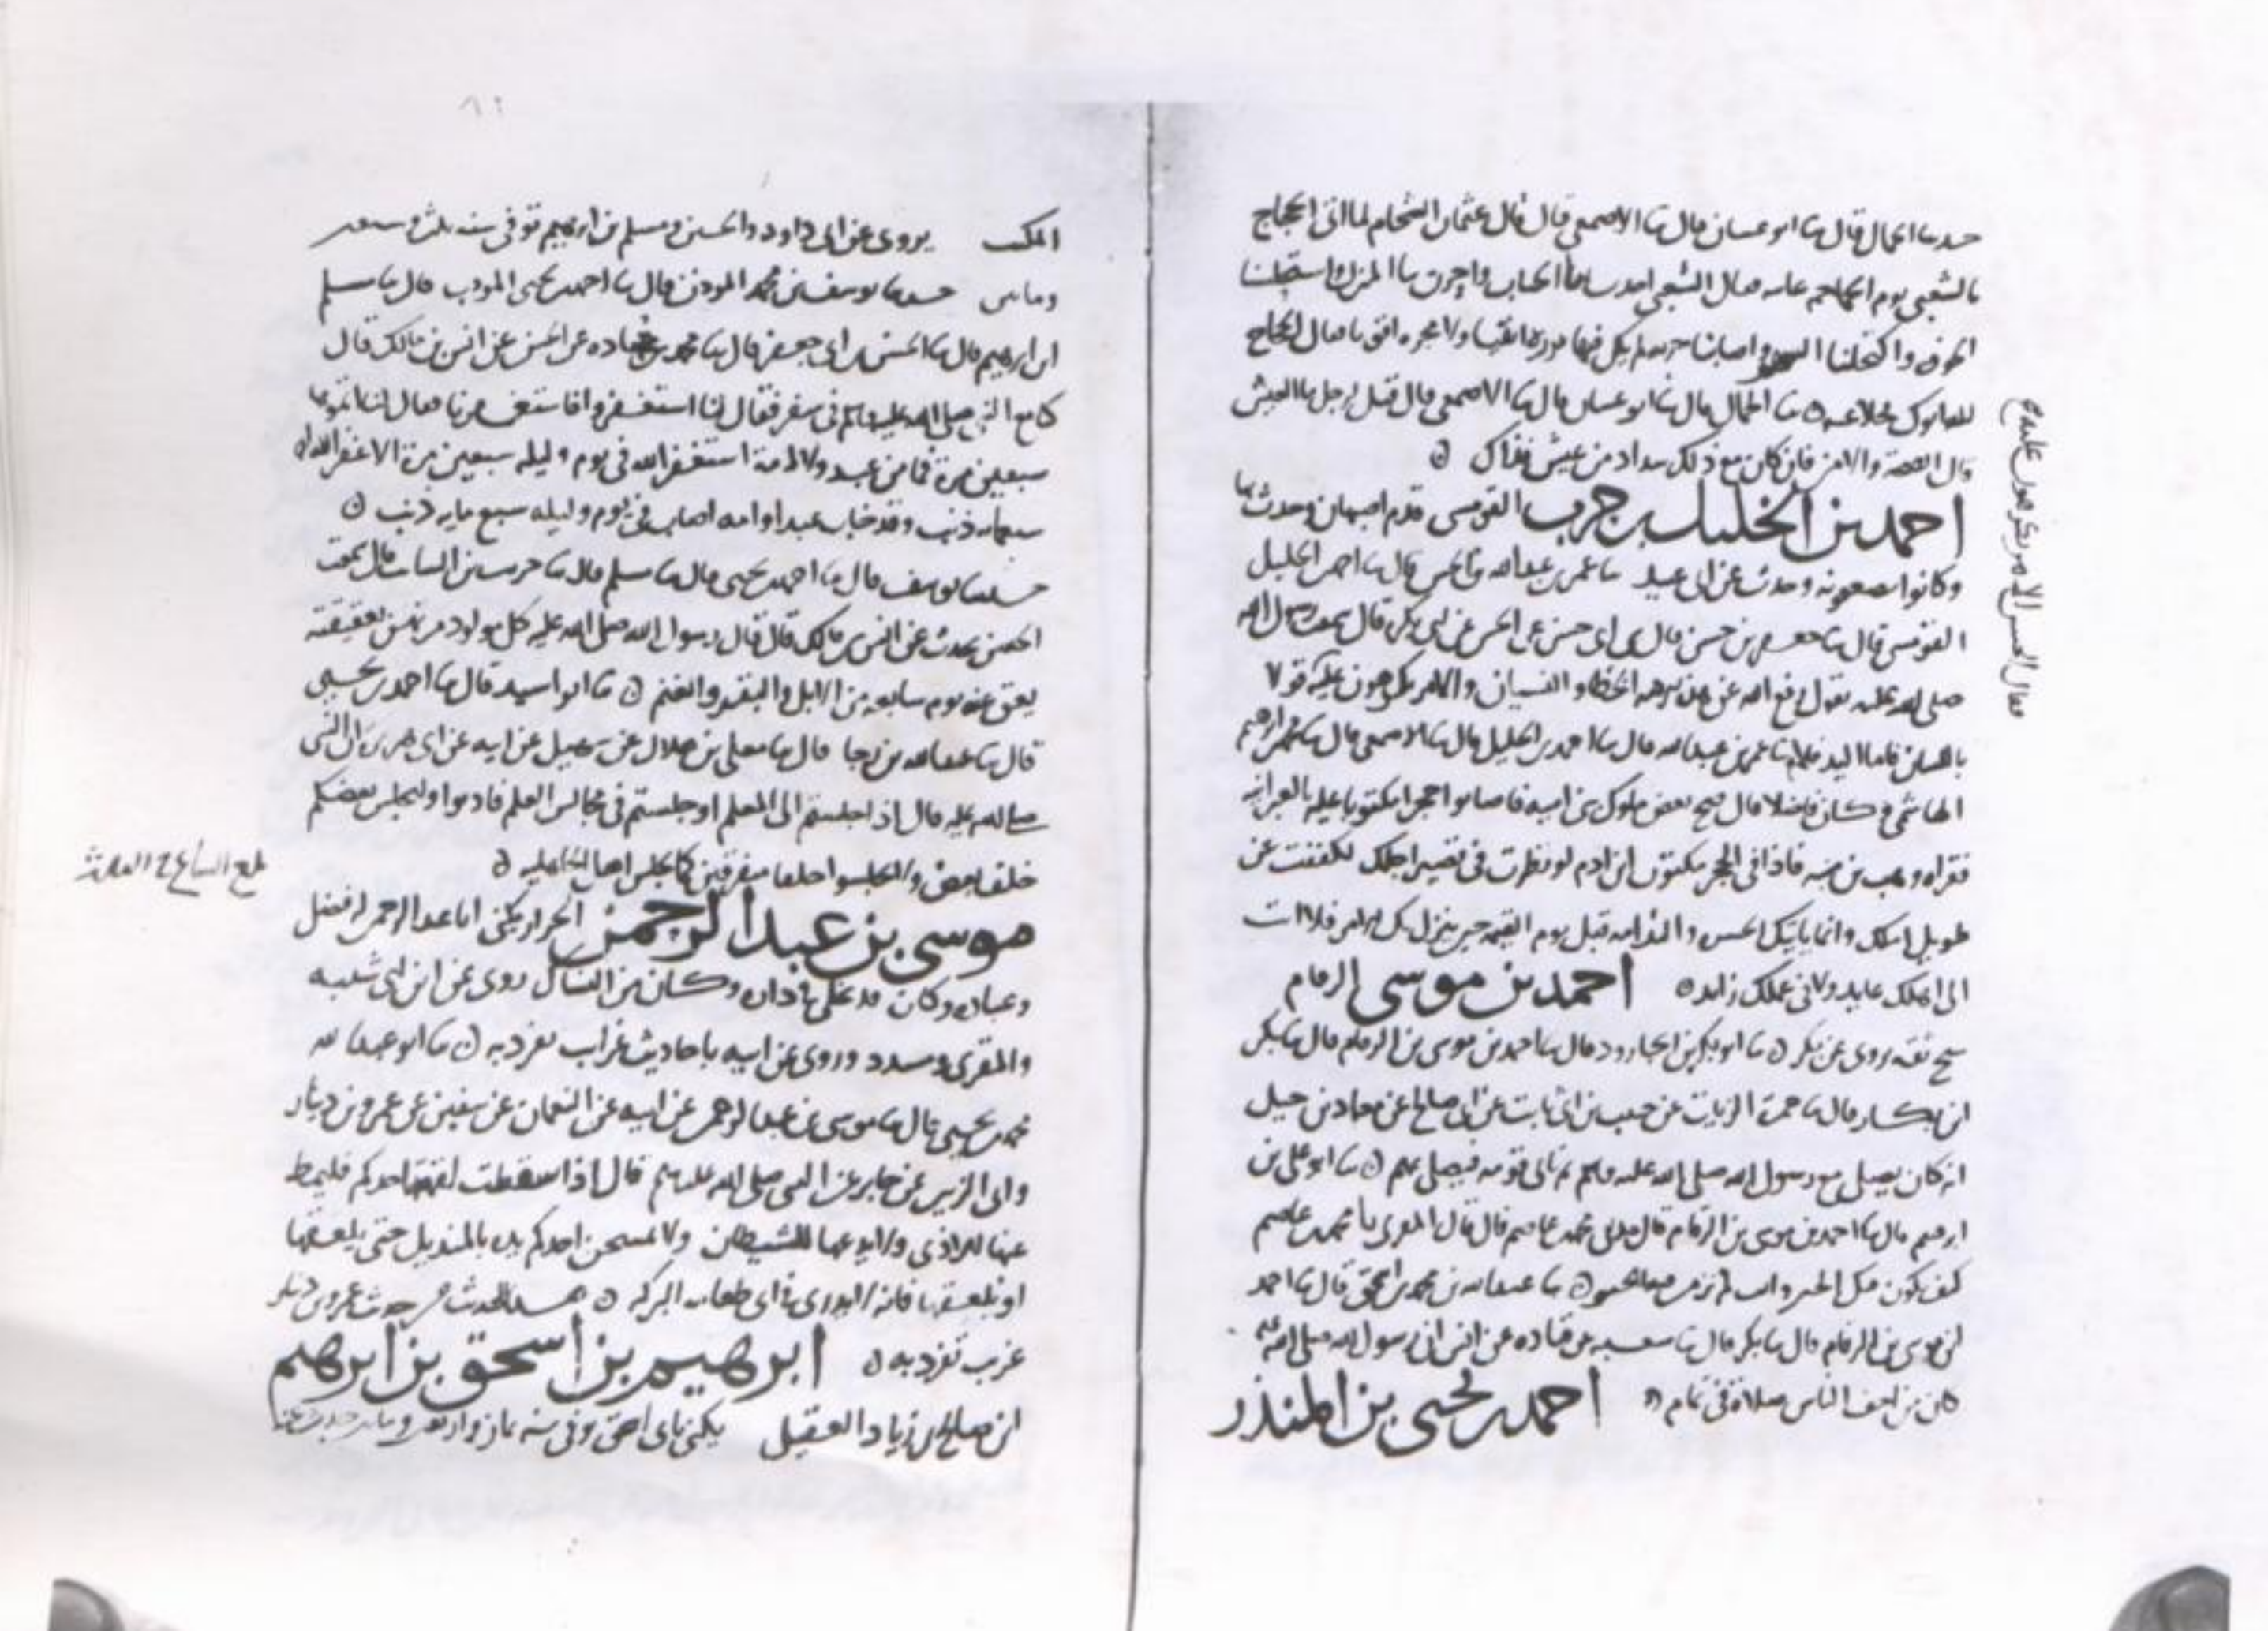 حدثنا الحمال قال ثنا ابو غسان قال ثنا الاصمعي قال قال عثمان الشحام لما اتى الحجاج
بالشعبي يوم الجماجم عاتبه فقال الشعبي اجدب بنا الجناب واحزن بنا المنزل واستحلسنا
الخوف واكتحلنا السهر واصابتنا خزية لم نكن فيها بررة اتقيا ولا فجرة اقويا فقال الحجاج
ثنا الحمال قال ثنا ابو غسان قال ثنا الاصمعي قال قيل لرجل ما العيش
قال الصحة والامن فان كان مع ذلك سداد من عيش فذاك
احمد بن الخليل بن حرب القومسي قدم اصبهان وحدث بها
وكانوا يضعفونه وحدث عن ابي عبيد ثنا عمر بن عبدالله بن الحسن قال ثنا احمد بن الخليل
القومسي قال ثنا جعفر بن حسن قال ثنا ابي حسن عن الحسن عن ابي بكرة قال سمعت رسول الله
صلى الله عليه يقول رفع الله عن هذه الامة الخطا والنسيان والامر يكرهون عليه
باللسان فاما اليد فلا ثنا عمر بن عبدالله قال ثنا احمد بن الخليل قال ثنا الاصمعي قال ثنا محمد بن ابرهيم
الهاشمي وكان فاضلا قال حج بعض ملوك بني امية فاصابوا حجرا مكتوبا عليه بالعبرانية
فقراه وهب بن منبه فاذا في الحجر مكتوب ابن ادم لو نظرت في قصير اجلك لكففت عن
طويل املك وانما ياتيك الحسرة والندامة قبل يوم القيمة حين ينزل بك الامر فلا انت
الى اهلك عايد ولا في عملك زايد احمد بن موسى الرقام
شيخ ثقة روى عن بكر ثنا ابو بكر بن الجارود قال ثنا احمد بن موسى بن الرقام قال ثنا بكر
ابن بكار قال ثنا حمزة الزيات عن حبيب بن ابي ثابت عن ابي صالح عن معاذ بن جبل
انه كان يصلي مع رسول الله صلى الله عليه وسلم ثم ياتي قومه فيصلي بهم ثنا ابو علي بن
ابرهيم قال ثنا احمد بن موسى بن الرقام قال حدثني محمد بن عاصم قال قال المقري يا محمد بن عاصم
ثنا عبدالله بن محمد بن اسحق قال ثنا احمد
ابن موسى بن الرقام قال ثنا بكر قال ثنا سعيد عن قتادة عن انس ان رسول الله صلى الله عليه
كان من اخف الناس صلاة في تمام احمد بن يحيى بن المنذر
فقال الحسن الامر يكرهون عليه
المكتب يروي عن ابي داود والحسين ومسلم بن ابرهيم توفي سنة ثلث وسبعين
ومايتين حدثنا يوسف بن محمد المودن قال ثنا احمد بن يحيى المودب قال ثنا مسلم
ابن ابرهيم قال ثنا الحسن بن ابي جعفر قال ثنا محمد بن جحادة عن الحسن عن انس بن مالك قال
كنا مع النبي صلى الله عليه وسلم في سفر فقال لنا استغفروا فاستغفرنا فقال لنا اتموها
سبعين مرة فما من عبد ولا امة استغفر الله في يوم وليلة سبعين مرة الا غفر الله له
سبعماية ذنب وقد خاب عبد او امة اصاب في يوم وليلة سبع ماية ذنب
حدثنا يوسف قال ثنا احمد بن يحيى قال ثنا مسلم قال ثنا حريث بن السايب قال سمعت
الحسن يحدث عن انس بن مالك قال قال رسول الله صلى الله عليه كل مولود مرتهن بعقيقته
يعق عنه يوم سابعه من الابل والبقر والغنم ثنا ابو اسيد قال ثنا احمد بن يحيى
قال ثنا عبدالله بن رجا قال ثنا معلى بن هلال عن سهيل عن ابيه عن ابي هريرة ان النبي
صلى الله عليه قال اذا جلستم الى المعلم او جلستم في مجالس العلم فادنوا وليجلس بعضكم
خلف بعض ولا تجلسوا حلقا متفرقين كما يجلس اهل الجاهلية
موسى بن عبد الرحمن الجرار يكنى ابا عبد الرحمن له فضل
وعبادة وكان من النساك روى عن ابن ابي شيبة
والمقري ومسدد وروى عن ابيه باحاديث غرايب تفرد به ثنا ابو عبدالله
محمد بن يحيى قال ثنا موسى بن عبد الرحمن عن ابيه عن النعمان عن سفين عن عمرو بن دينار
وابي الزبير عن جابر عن النبي صلى الله عليه وسلم قال اذا سقطت لقمة احدكم فليمط
عنها الاذى ولا يدعها للشيطان ولا يمسحن احدكم يده بالمنديل حتى يلعقها
او يلعقها فانه لا يدري في اي طعامه البركة هذا الحديث من حديث عمرو بن دينار
غريب تفرد به ابرهيم بن اسحق بن ابرهيم
ابن صالح بن زياد العقيلي يكنى بابي اسحق توفي سنة ثمان واربعين ومايتين حدث عنه
بلغ السماع في الثالث